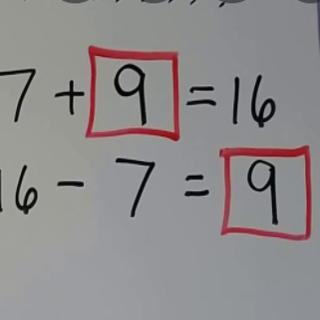 7 + 9 = 16
16 - 7 = 9